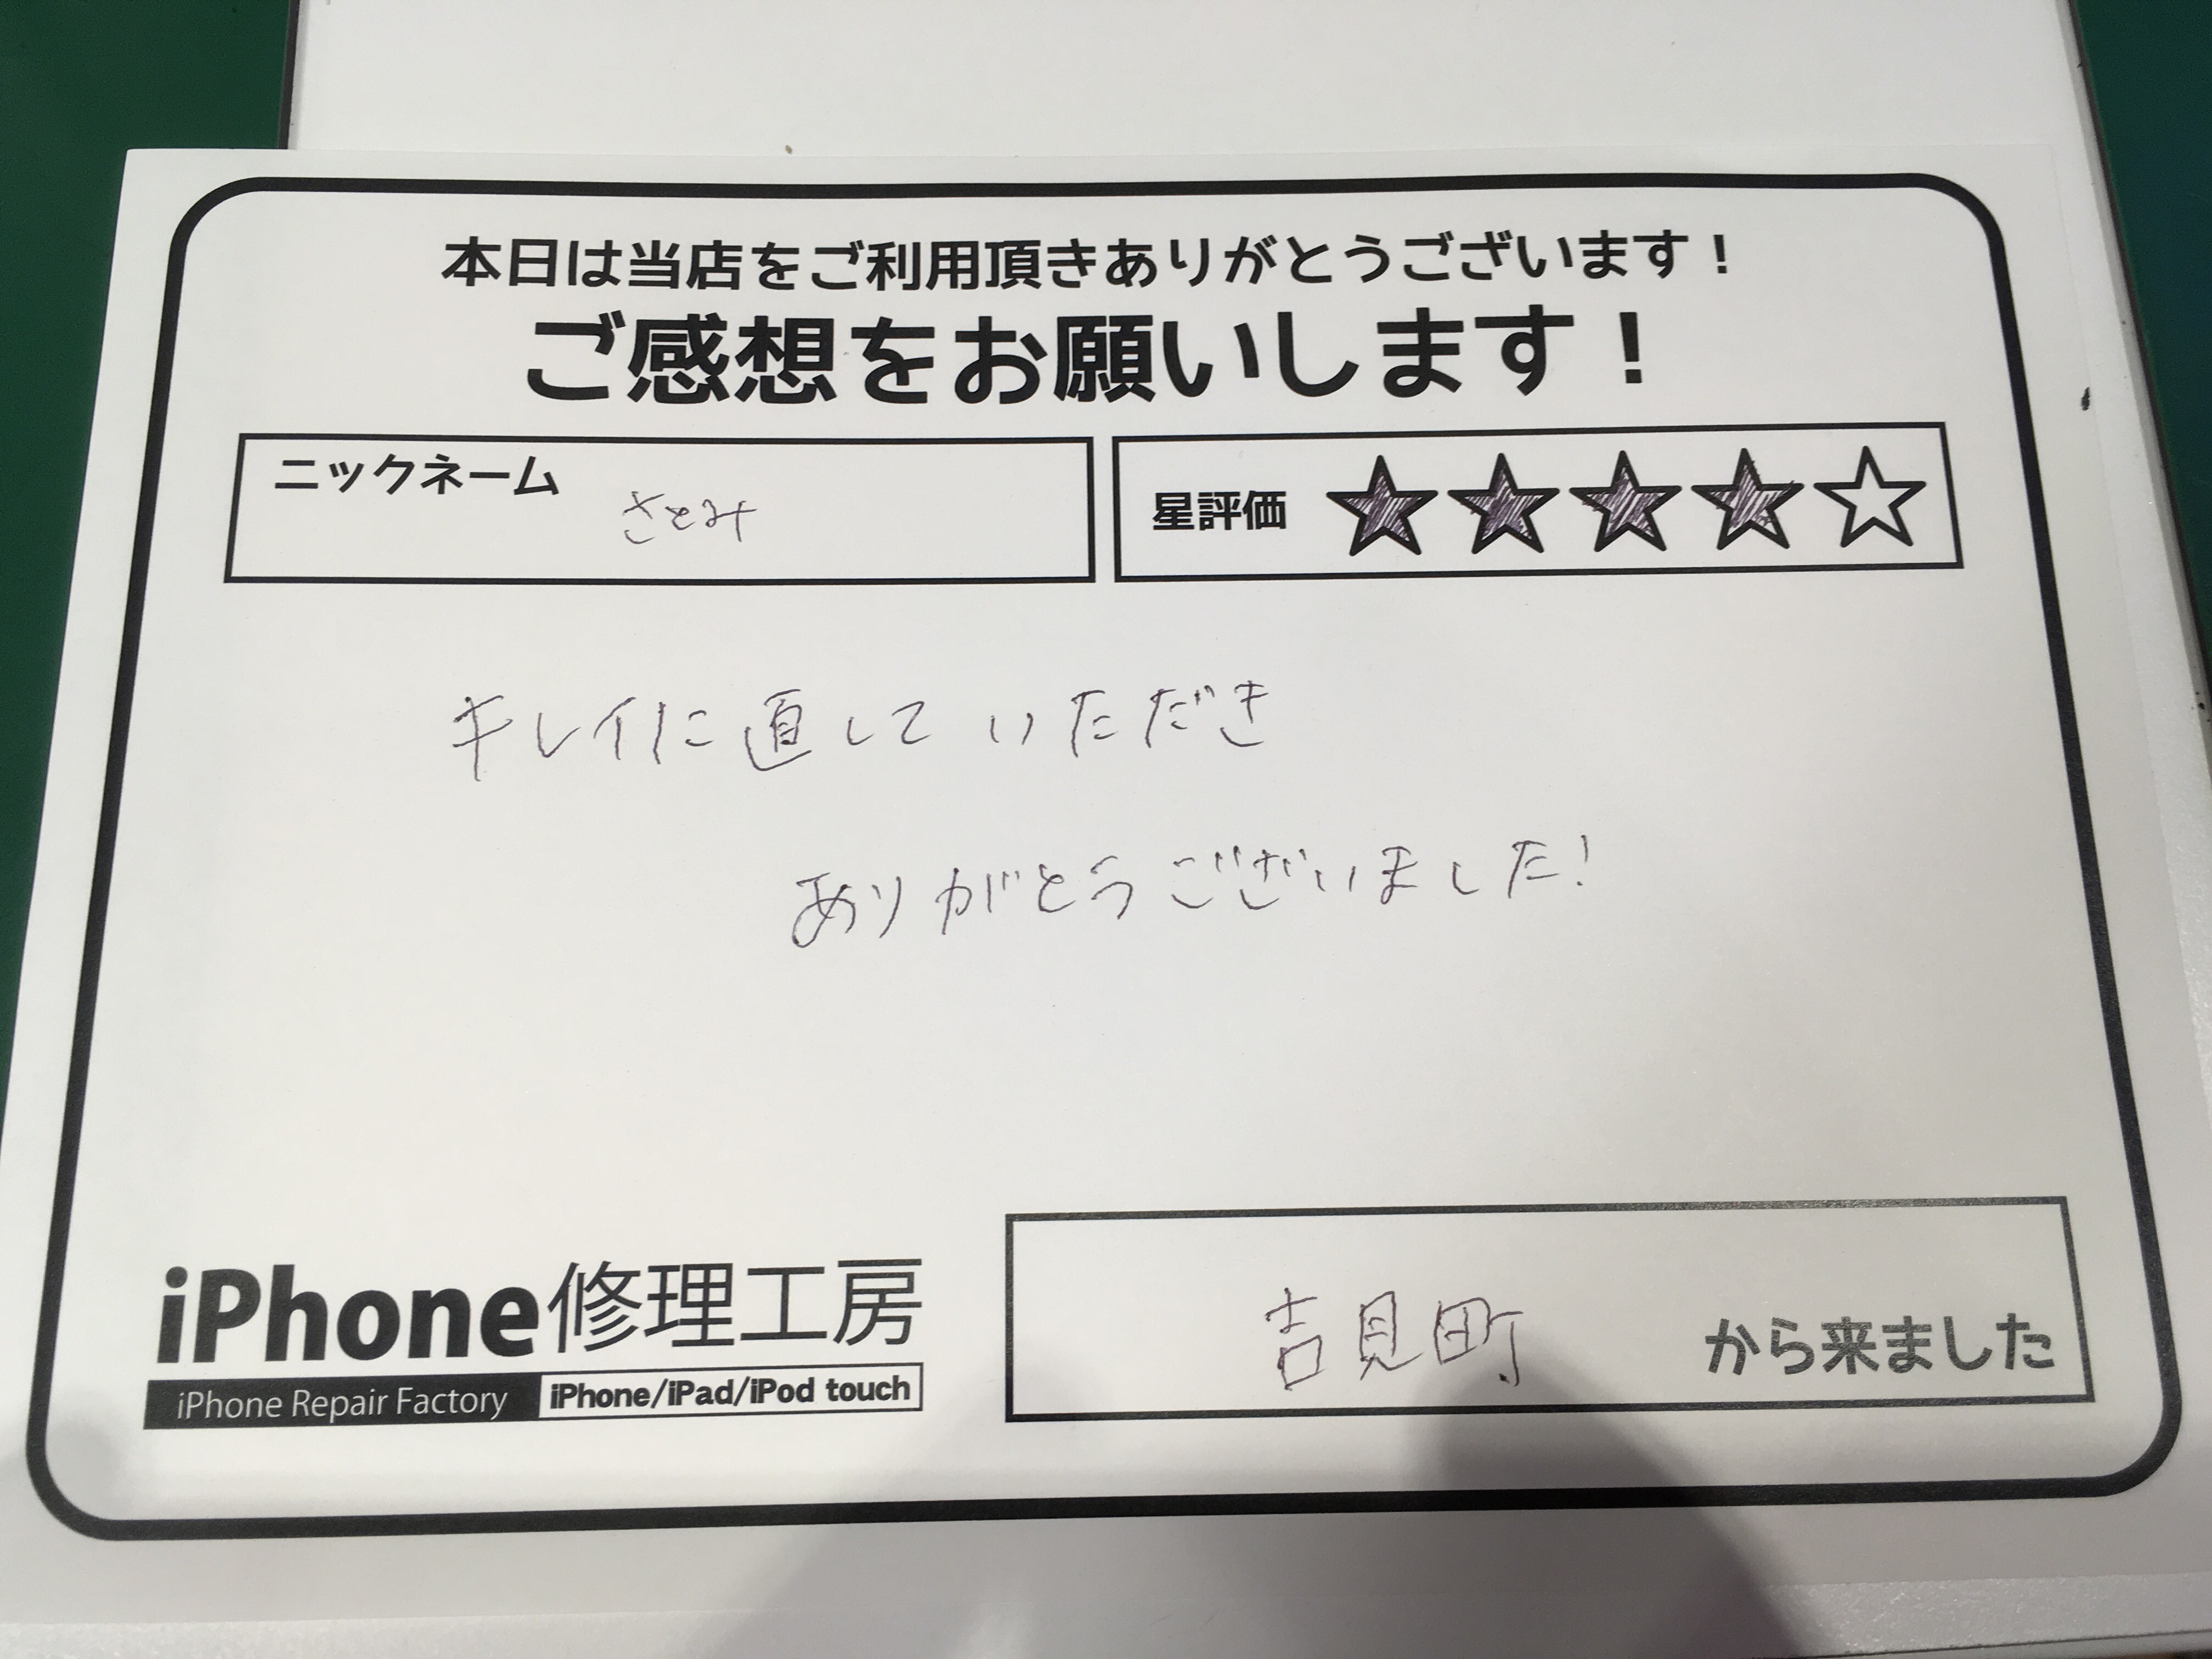 本日は当店をご利用頂きありがとうございます！
ご感想をお願いします！
ニックネーム さとみ
星評価 ★★★★☆
キレイに直していただき
ありがとうございました!
iPhone修理工房
iPhone Repair Factory iPhone/iPad/iPod touch
吉見町 から来ました